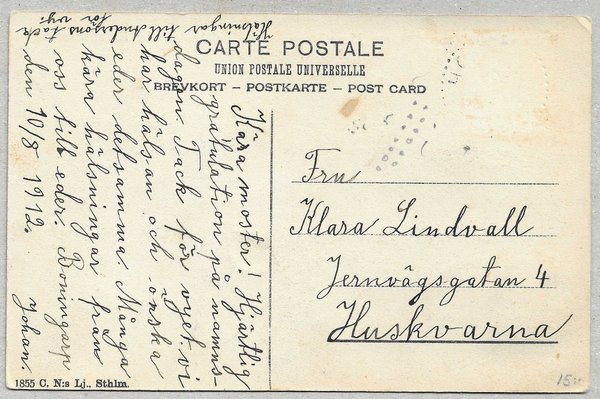 CARTE POSTALE
UNION POSTALE UNIVERSELLE
BREVKORT - POSTKARTE - POST CARD
Kära moster! Hjärtlig
gratulation på namns-
dagen. Tack för vyet. vi
har hälsan och önska
eder detsamma. Många
kära hälsningar från
oss till eder. Boningarp
den 10/8 1912. Johan.
Hälsningar till Anderssons tack
för vyt.
Fru
Klara Lindvall
Jernvägsgatan 4
Huskvarna
1855 C. N:s Lj., Sthlm.
15:-